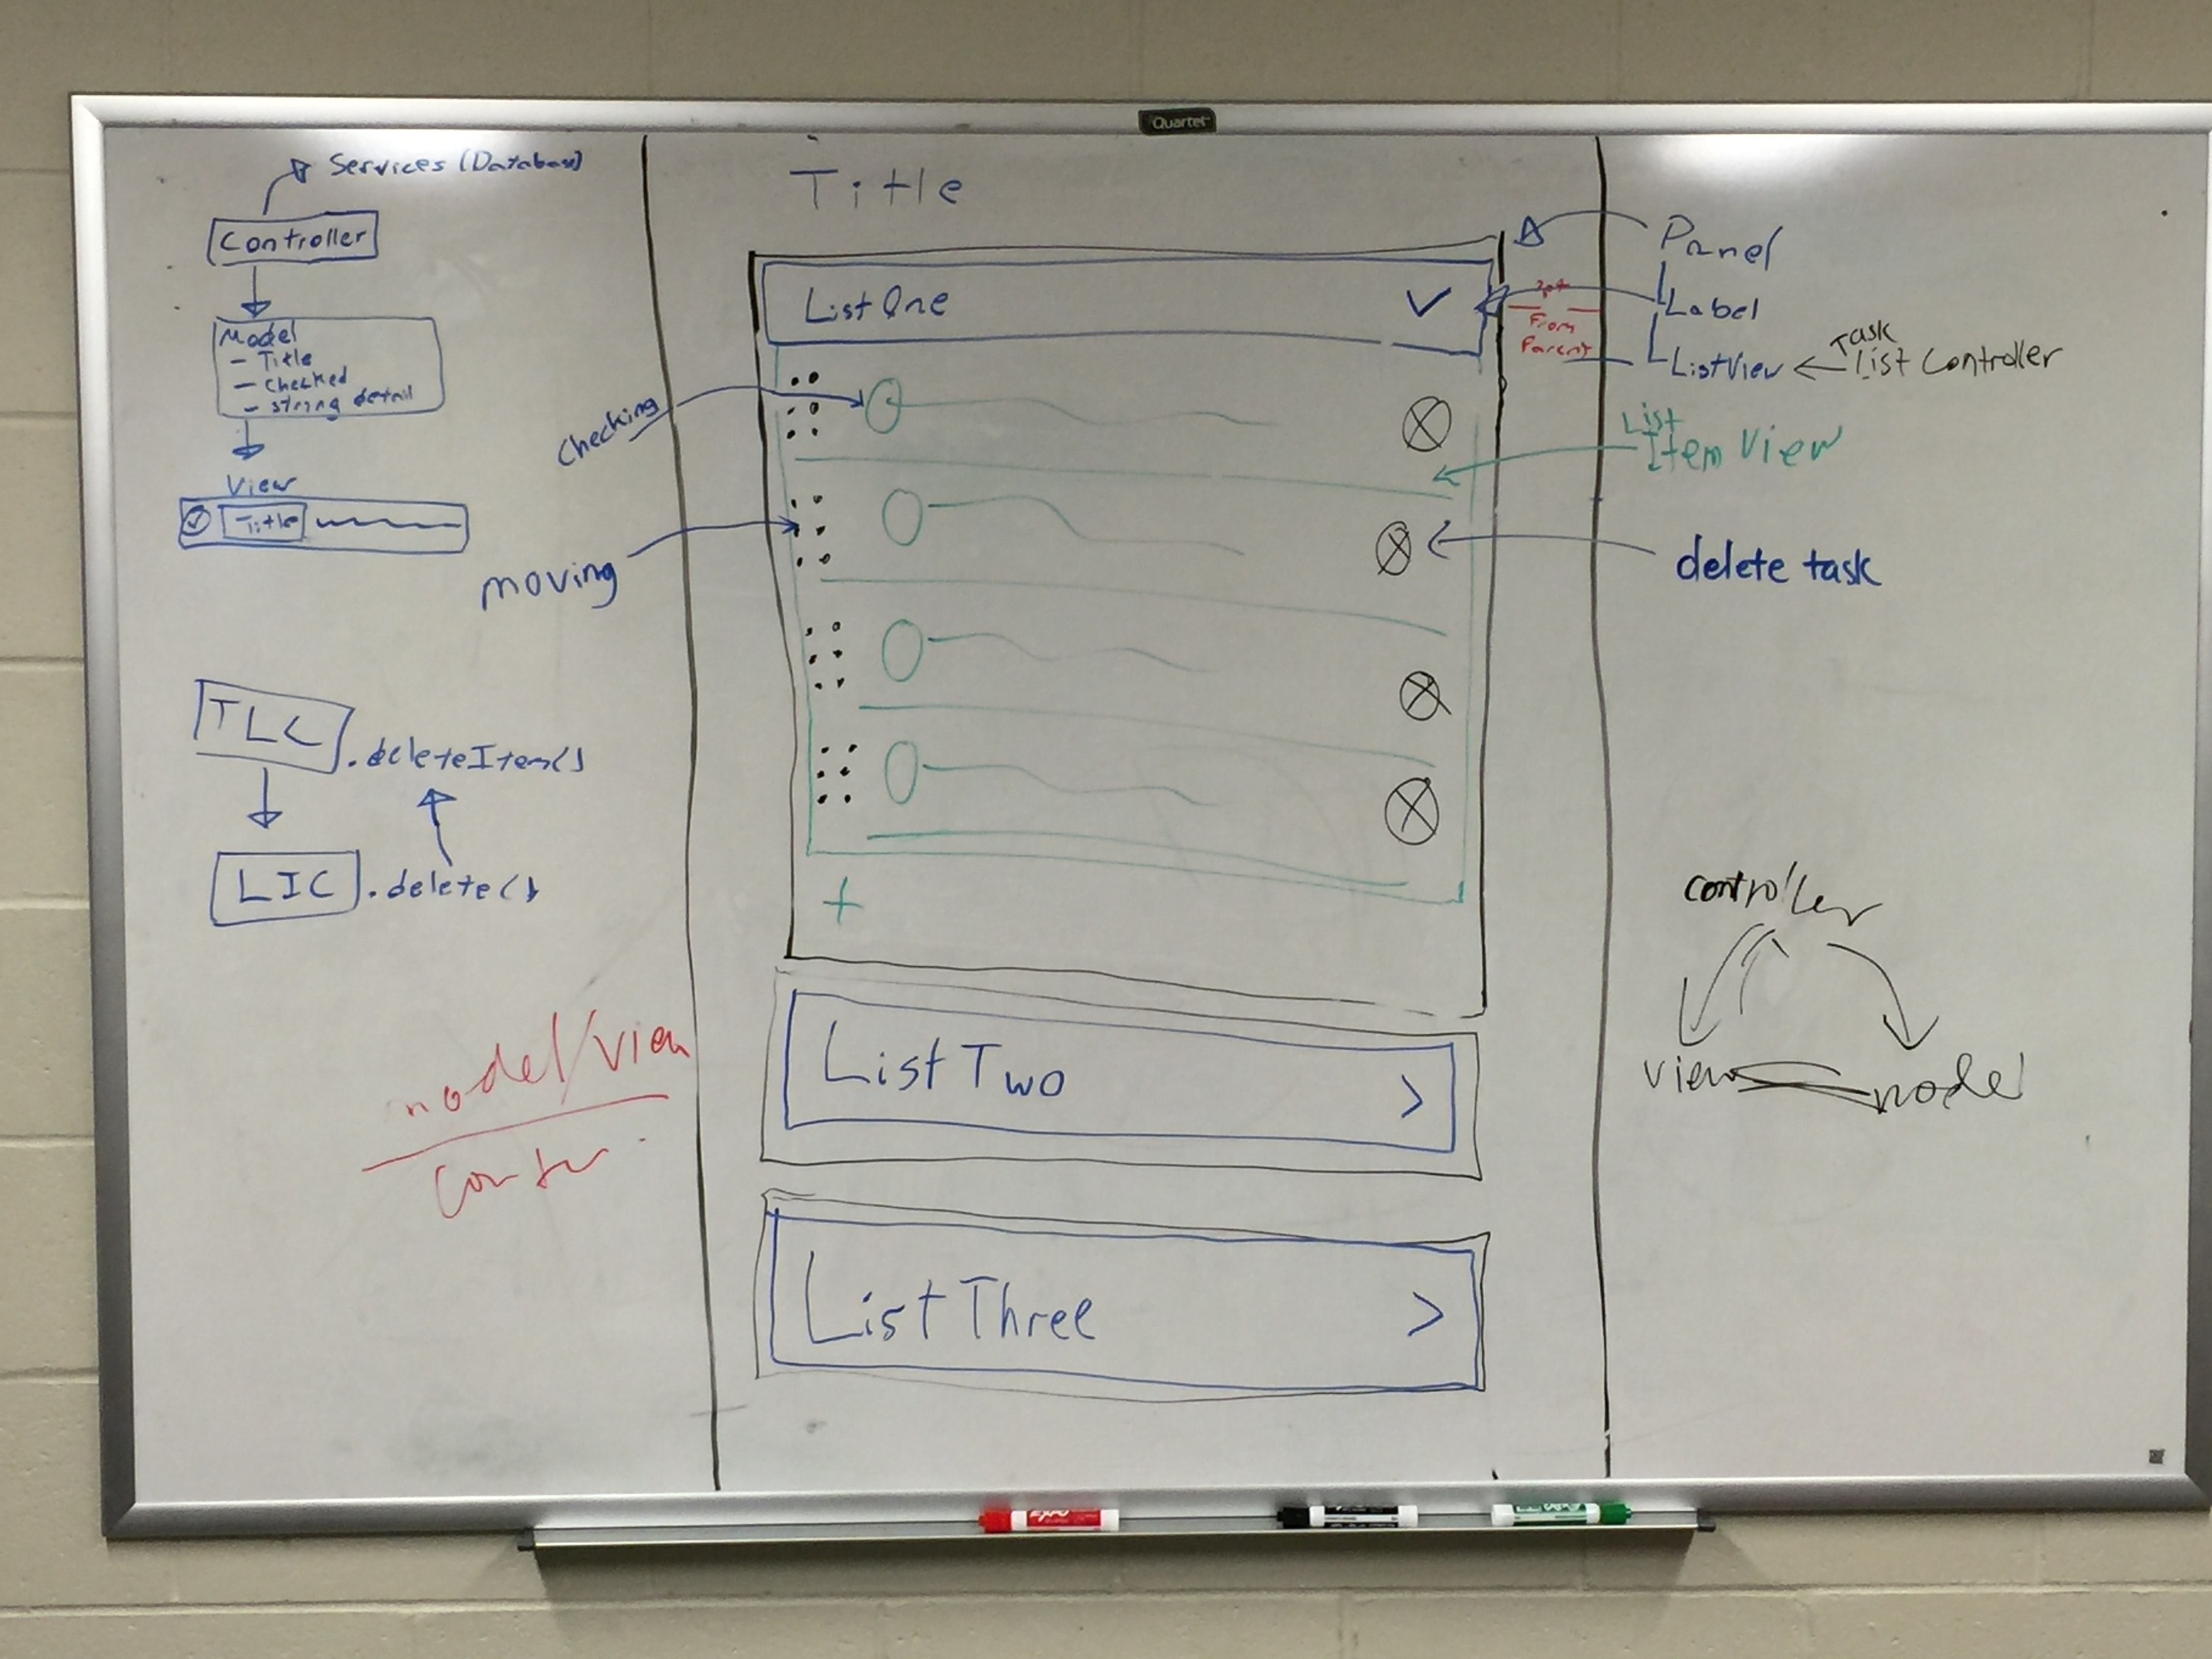 Quartet
Services (Database)
Controller
Model
- Title
- Checked
- string detail
View
Title
TLC
.deleteItem()
LIC
.delete()
model/view
Title
List One
checking
moving
+
List Two
>
List Three
>
Panel
Label
ListView
Task
List Controller
From
Parent
List
Item View
delete task
controller
view
model
EXPO